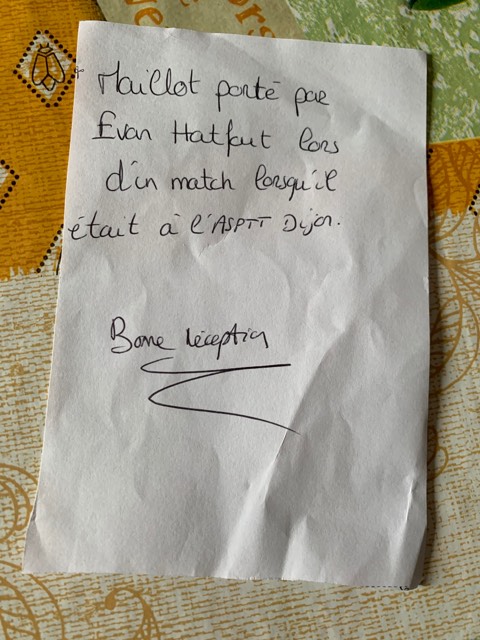 Maillot porté par
Evan Hatfout lors
d'un match lorsqu'il
était à l'ASPTT Dijon.
Bonne réception